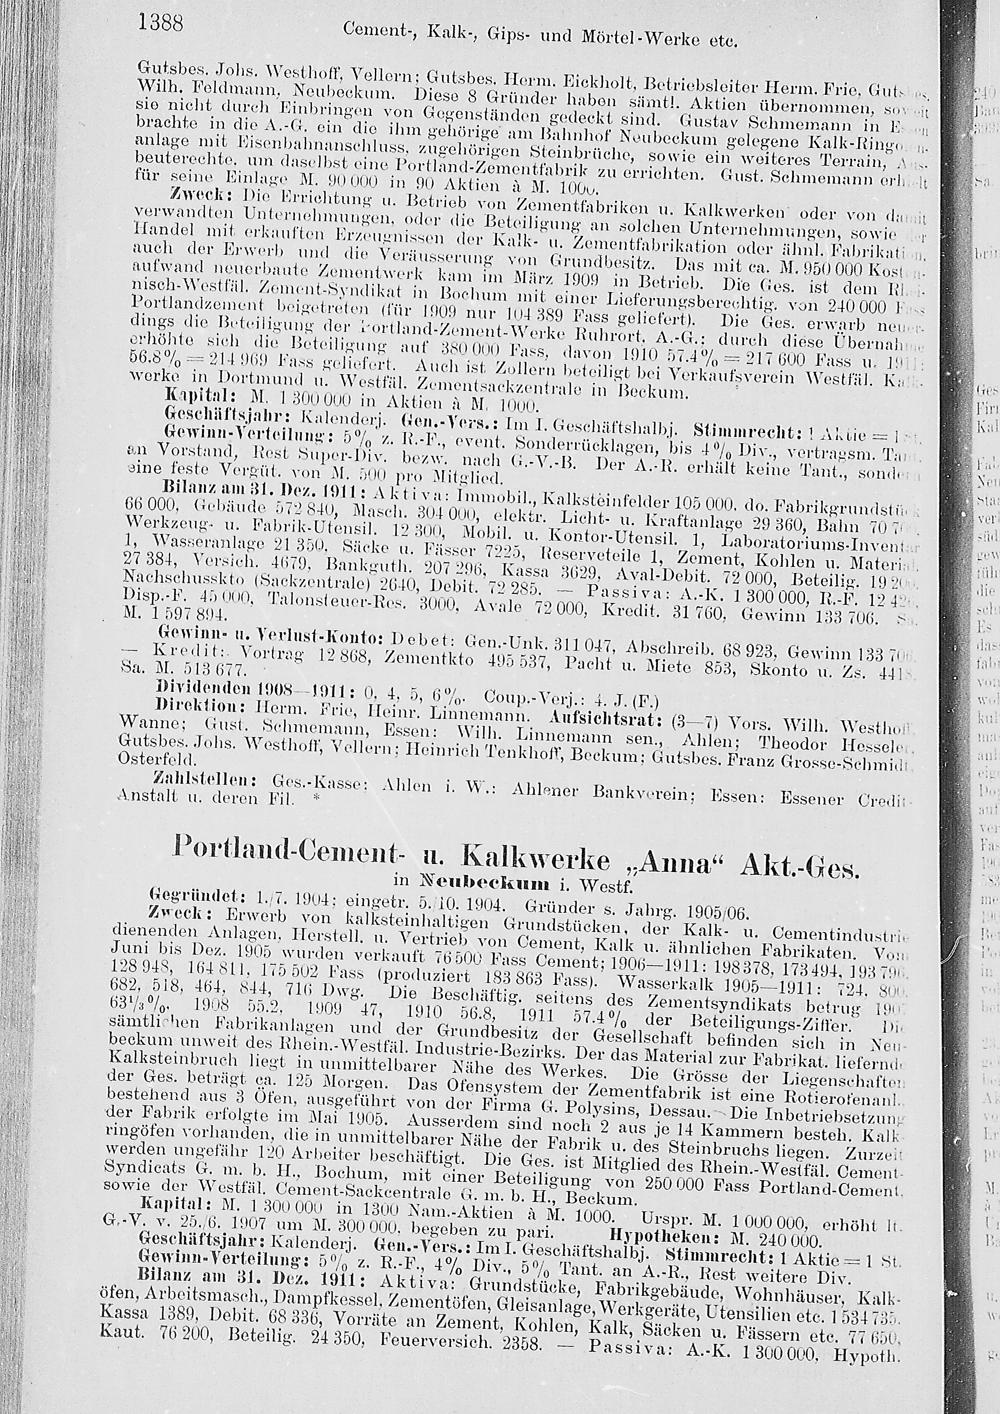 1388 Cement-, Kalk-, Gips- und Mörtel-Werke etc.
Gutsbes. Johs. Westhoff, Vellern; Gutsbes. Herm. Eickholt, Betriebsleiter Herm. Frie, Guts-
Wilh. Feldmann, Neubeckum. Diese 8 Gründer haben sämtl. Aktien übernommen,
sie nicht durch Einbringen von Gegenständen gedeckt sind. Gustav Schmemann in
brachte in die A.-G. ein die ihm gehörige am Bahnhof Neubeckum gelegene Kalk-Ringo
anlage mit Eisenbahnanschluss, zugehörigen Steinbrüche, sowie ein weiteres Terrain,
beuterechte, um daselbst eine Portland-Zementfabrik zu errichten. Gust. Schmemann erhielt
für seine Einlage M. 90 000 in 90 Aktien à M. 1000.
Zweck: Die Errichtung u. Betrieb von Zementfabriken u. Kalkwerken oder von damit
verwandten Unternehmungen, oder die Beteiligung an solchen Unternehmungen, sowie der
Handel mit erkauften Erzeugnissen der Kalk- u. Zementfabrikation oder ähnl. Fabrikation,
auch der Erwerb und die Veräusserung von Grundbesitz. Das mit ca. M. 950 000 Kosten-
aufwand neuerbaute Zementwerk kam im März 1909 in Betrieb. Die Ges. ist dem Rhei-
nisch-Westfäl. Zement-Syndikat in Bochum mit einer Lieferungsberechtig. von 240 000 Fass
Portlandzement beigetreten (für 1909 nur 104 389 Fass geliefert). Die Ges. erwarb neuer-
dings die Beteiligung der Portland-Zement-Werke Ruhrort, A.-G.; durch diese Übernahme
erhöhte sich die Beteiligung auf 380 000 Fass, davon 1910 57.4% = 217 600 Fass u. 1911:
56.8% = 214 969 Fass geliefert. Auch ist Zollern beteiligt bei Verkaufsverein Westfäl. Kalk-
werke in Dortmund u. Westfäl. Zementsackzentrale in Beckum.
Kapital: M. 1 300 000 in Aktien à M. 1000.
Geschäftsjahr: Kalenderj. Gen.-Vers.: Im I. Geschäftshalbj. Stimmrecht: 1 Aktie = 1 St.
Gewinn-Verteilung: 5% z. R.-F., event. Sonderrücklagen, bis 4% Div., vertragsm. Tant.
an Vorstand, Rest Super-Div. bezw. nach G.-V.-B. Der A.-R. erhält keine Tant., sondern
eine feste Vergüt. von M. 500 pro Mitglied.
Bilanz am 31. Dez. 1911: Aktiva: Immobil., Kalksteinfelder 105 000, do. Fabrikgrundstück
66 000, Gebäude 572 840, Masch. 304 000, elektr. Licht- u. Kraftanlage 29 360, Bahn
Werkzeug- u. Fabrik-Utensil. 12 300, Mobil. u. Kontor-Utensil. 1, Laboratoriums-Inventar
1, Wasseranlage 21 350, Säcke u. Fässer 7225, Reserveteile 1, Zement, Kohlen u. Material.
27 384, Versich. 4679, Bankguth. 207 296, Kassa 3629, Aval-Debit. 72 000, Beteilig.
Nachschusskto (Sackzentrale) 2640, Debit. 72 285. — Passiva: A.-K. 1 300 000, R.-F.
Disp.-F. 45 000, Talonsteuer-Res. 3000, Avale 72 000, Kredit. 31 760, Gewinn 133 706. Sa.
M. 1 597 894.
Gewinn- u. Verlust-Konto: Debet: Gen.-Unk. 311 047, Abschreib. 68 923, Gewinn 133 706.
— Kredit: Vortrag 12 868, Zementkto 495 537, Pacht u. Miete 853, Skonto u. Zs. 4418.
Sa. M. 513 677.
Dividenden 1908—1911: 0, 4, 5, 6%. Coup.-Verj.: 4. J. (F.)
Direktion: Herm. Frie, Heinr. Linnemann. Aufsichtsrat: (3—7) Vors. Wilh. Westhoff,
Wanne; Gust. Schmemann, Essen; Wilh. Linnemann sen., Ahlen; Theodor
Gutsbes. Johs. Westhoff, Vellern; Heinrich Tenkhoff, Beckum; Gutsbes. Franz Grosse-Schmidt,
Osterfeld.
Zahlstellen: Ges.-Kasse; Ahlen i. W.: Ahlener Bankverein; Essen: Essener Credit-
Anstalt u. deren Fil. *
Portland-Cement- u. Kalkwerke „Anna“ Akt.-Ges.
in Neubeckum i. Westf.
Gegründet: 1./7. 1904; eingetr. 5./10. 1904. Gründer s. Jahrg. 1905/06.
Zweck: Erwerb von kalksteinhaltigen Grundstücken, der Kalk- u. Cementindustrie
dienenden Anlagen, Herstell. u. Vertrieb von Cement, Kalk u. ähnlichen Fabrikaten. Vom
Juni bis Dez. 1905 wurden verkauft 76 500 Fass Cement; 1906—1911: 198 378, 173 494,
128 948, 164 811, 175 502 Fass (produziert 183 863 Fass). Wasserkalk 1905—1911: 724,
682, 518, 464, 844, 716 Dwg. Die Beschäftig. seitens des Zementsyndikats betrug
63⅓%, 1908 55.2, 1909 47, 1910 56.8, 1911 57.4% der Beteiligungs-Ziffer. Die
sämtlichen Fabrikanlagen und der Grundbesitz der Gesellschaft befinden sich in Neu-
beckum unweit des Rhein.-Westfäl. Industrie-Bezirks. Der das Material zur Fabrikat. liefernde
Kalksteinbruch liegt in unmittelbarer Nähe des Werkes. Die Grösse der Liegenschaften
der Ges. beträgt ca. 125 Morgen. Das Ofensystem der Zementfabrik ist eine Rotierofenanl.,
bestehend aus 3 Öfen, ausgeführt von der Firma G. Polysins, Dessau. Die Inbetriebsetzung
der Fabrik erfolgte im Mai 1905. Ausserdem sind noch 2 aus je 14 Kammern besteh. Kalk-
ringöfen vorhanden, die in unmittelbarer Nähe der Fabrik u. des Steinbruchs liegen. Zurzeit
werden ungefähr 120 Arbeiter beschäftigt. Die Ges. ist Mitglied des Rhein.-Westfäl. Cement-
Syndicats G. m. b. H., Bochum, mit einer Beteiligung von 250 000 Fass Portland-Cement,
sowie der Westfäl. Cement-Sackcentrale G. m. b. H., Beckum.
Kapital: M. 1 300 000 in 1300 Nam.-Aktien à M. 1000. Urspr. M. 1 000 000, erhöht lt.
G.-V. v. 25./6. 1907 um M. 300 000, begeben zu pari. Hypotheken: M. 240 000.
Geschäftsjahr: Kalenderj. Gen.-Vers.: Im I. Geschäftshalbj. Stimmrecht: 1 Aktie = 1 St.
Gewinn-Verteilung: 5% z. R.-F., 4% Div., 5% Tant. an A.-R., Rest weitere Div.
Bilanz am 31. Dez. 1911: Aktiva: Grundstücke, Fabrikgebäude, Wohnhäuser, Kalk-
öfen, Arbeitsmasch., Dampfkessel, Zementöfen, Gleisanlage, Werkgeräte, Utensilien etc. 1 534 735,
Kassa 1389, Debit. 68 336, Vorräte an Zement, Kohlen, Kalk, Säcken u. Fässern etc. 77 650,
Kaut. 76 200, Beteilig. 24 350, Feuerversich. 2358. — Passiva: A.-K. 1 300 000, Hypoth.